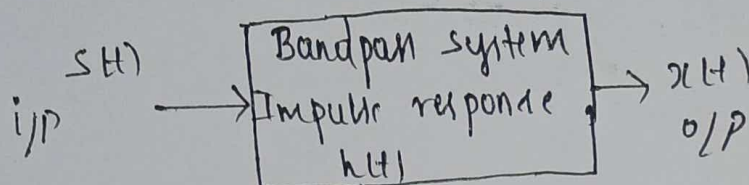 S(t)
i/p
Bandpass system
Impulse response
h(t)
x(t)
o/p